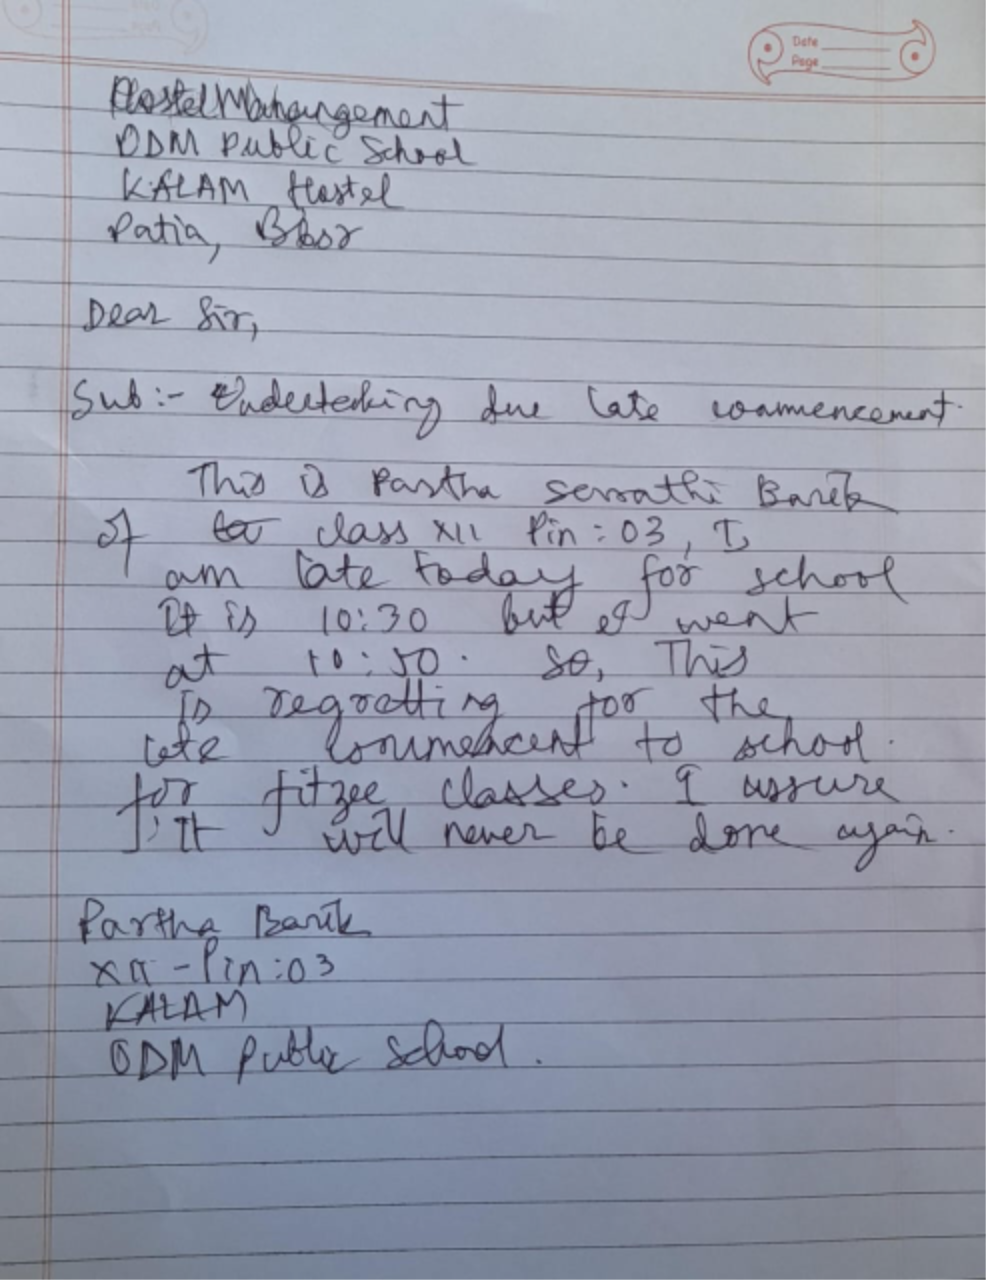 Date
Page
Hostel Mahangement
ODM Public School
KALAM Hostel
Patia, Bbsr
Dear Sir,
Sub :- Undertecking due late commencement.
This is Partha serrathi Barik
of class XII Pin : 03, I
am late today for school
It is 10:30 but I went
at 10:50. So, This
is regretting for the
late commencent to school.
for fitzee classes. I assure
, It will never be done again.
Partha Barik
XII - Pin : 03
KALAM
ODM Public School.